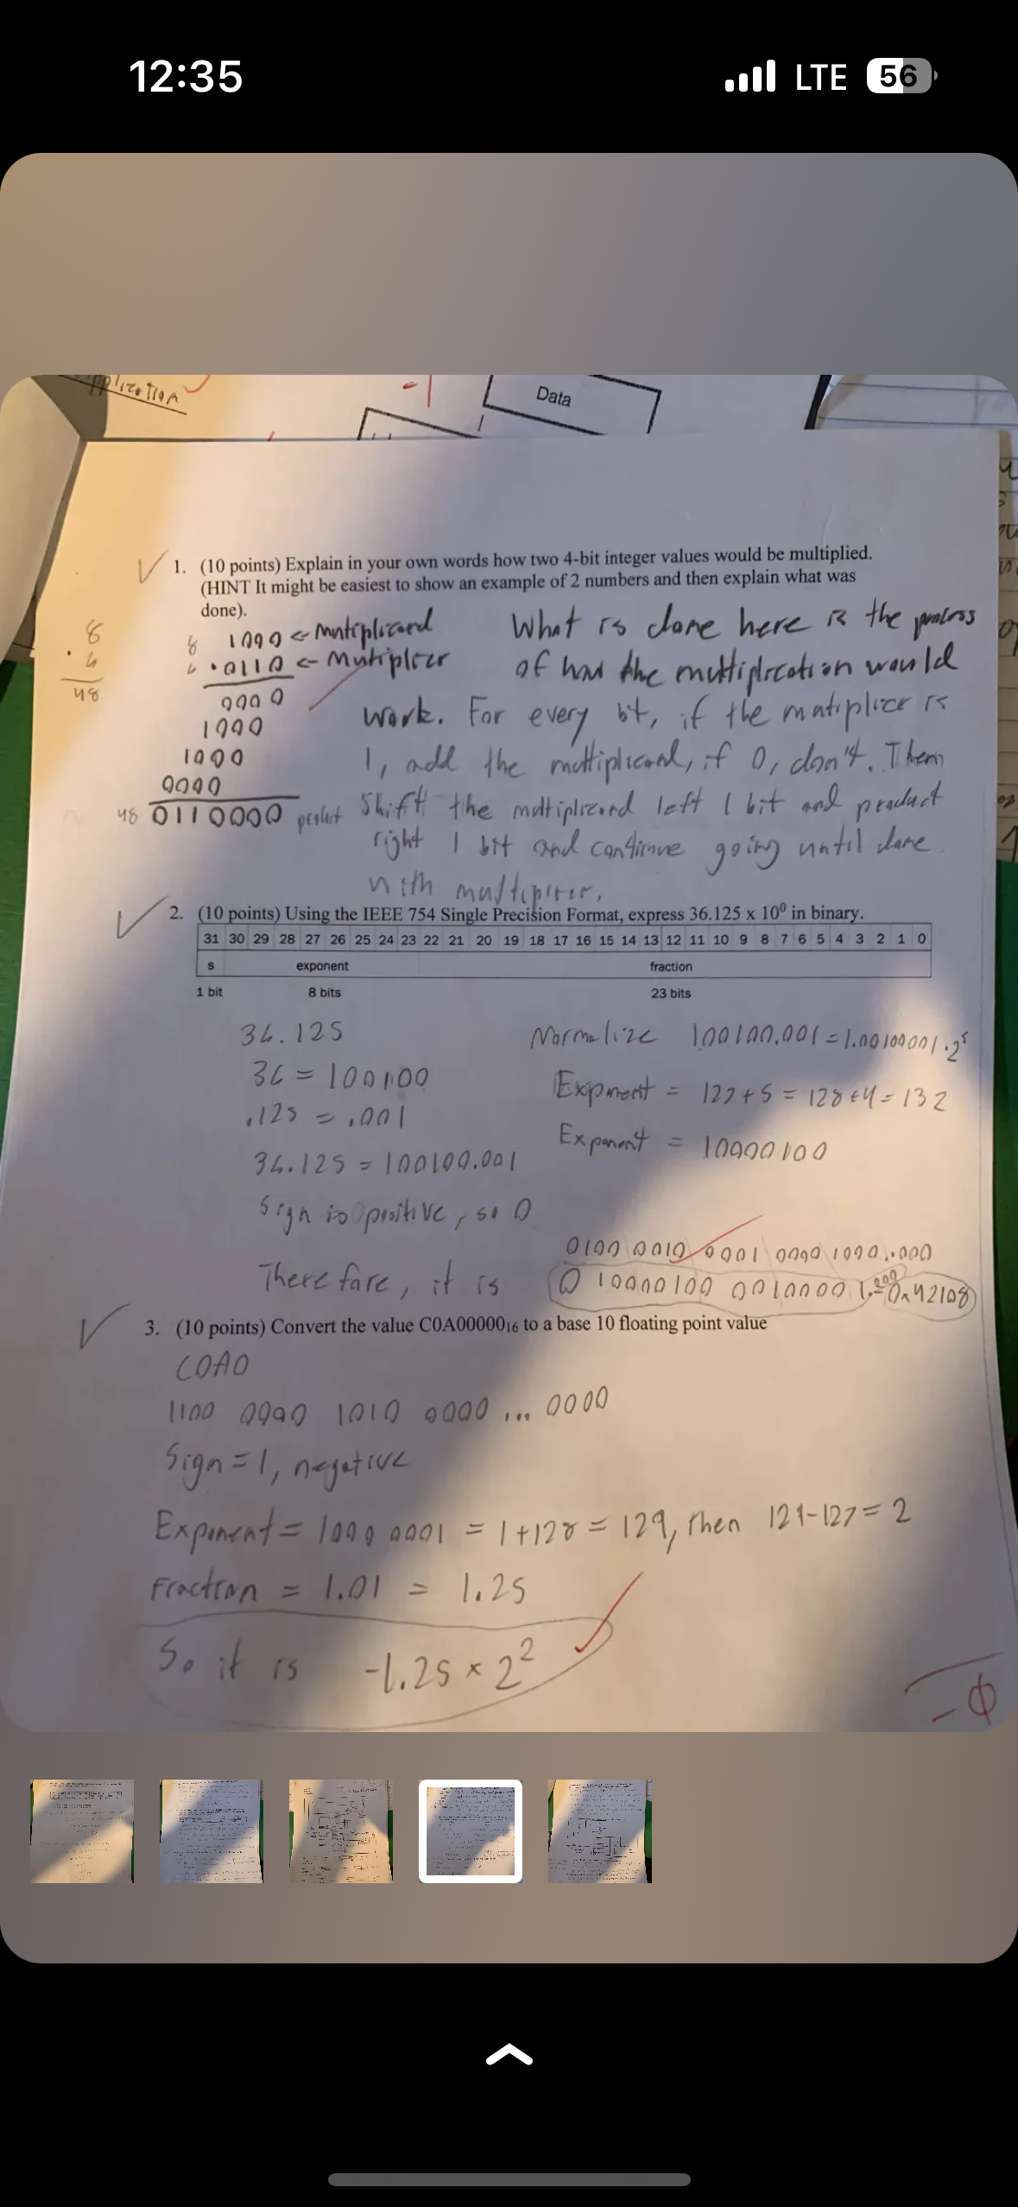 12:35 LTE 56
plication
-1
Data
1. (10 points) Explain in your own words how two 4-bit integer values would be multiplied.
(HINT It might be easiest to show an example of 2 numbers and then explain what was
done).
8
· 6
48
8 1000 <- Multiplicand
6 · 0110 <- Multiplier
0000
1000
1000
0000
48 0110000 product
What is done here is the process
of how the multiplication would
work. For every bit, if the multiplier is
1, add the multiplicand, if 0, don't. Then
shift the multiplicand left 1 bit and product
right 1 bit and continue going until done
with multiplier.
2. (10 points) Using the IEEE 754 Single Precision Format, express 36.125 x 10⁰ in binary.
31 30 29 28 27 26 25 24 23 22 21 20 19 18 17 16 15 14 13 12 11 10 9 8 7 6 5 4 3 2 1 0
s exponent fraction
1 bit 8 bits 23 bits
36.125
36 = 100100
.125 = .001
36.125 = 100100.001
Sign is positive, so 0
Normalize 100100.001 = 1.00100001 · 2⁵
Exponent = 127 + 5 = 128 + 4 = 132
Exponent = 10000100
0100 0010 0001 0000 1000...000
Therefore, it is 0 10000100 00100001...000 = 0x42108
3. (10 points) Convert the value C0A00000₁₆ to a base 10 floating point value
C0A0
1100 0000 1010 0000 ... 0000
Sign = 1, negative
Exponent = 1000 0001 = 1 + 128 = 129, then 129 - 127 = 2
Fraction = 1.01 = 1.25
So it is -1.25 × 2²
-0